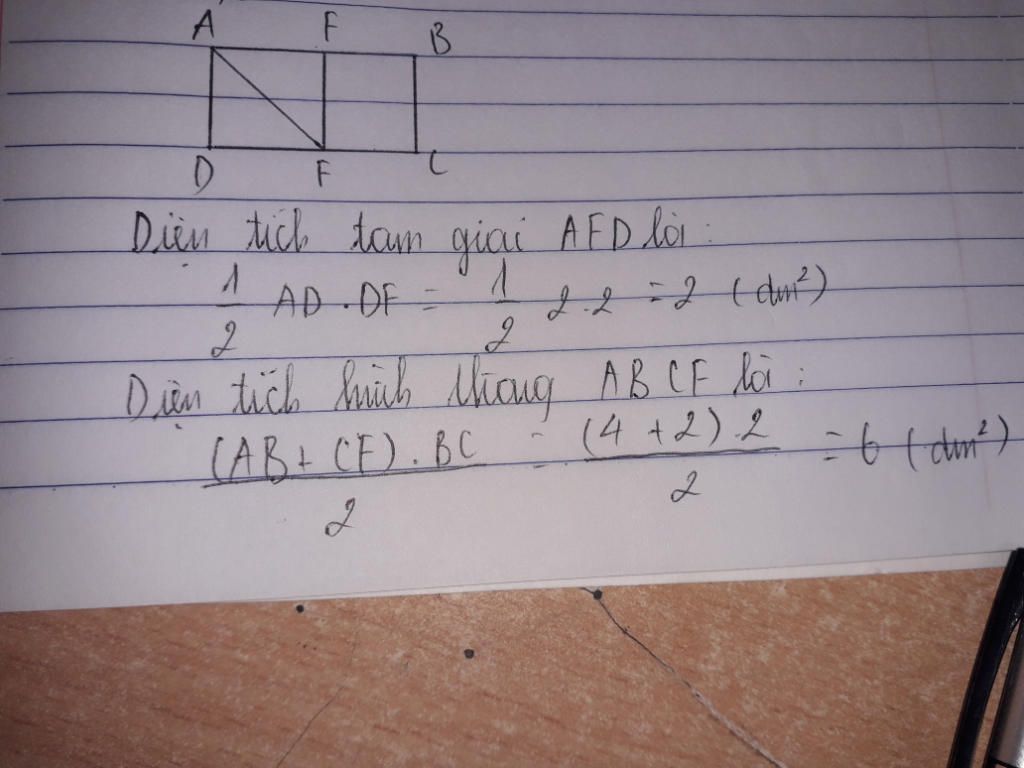 A F B
D F C
Diện tích tam giai AFD lòi:
1/2 AD . DF = 1/2 2.2 = 2 (dm²)
Diện tích hình thang ABCF lòi:
(AB + CF) . BC / 2 = (4 + 2) . 2 / 2 = 6 (dm²)